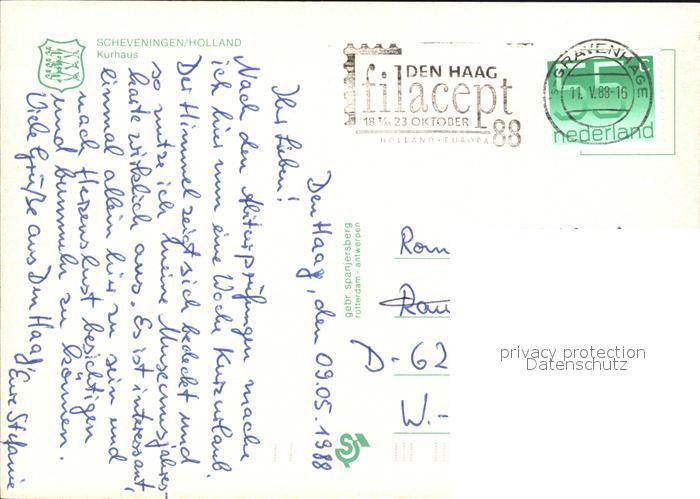 SCHEVENINGEN/HOLLAND
Kurhaus
DEN HAAG
filacept
18 t/m 23 OKTOBER
88
HOLLAND-EUROPA
'S-GRAVENHAGE
11. V. 88-16
55
nederland
Den Haag, den 09.05.1988
Ihr Lieben!
Nach den Abiturprüfungen mache
ich hier nun eine Woche Kurzurlaub.
Der Himmel zeigt sich bedeckt und
so nutze ich meine Museumsjahres-
karte wirklich aus. Es ist interessant,
einmal allein hier zu sein und
nach Herzenslust besichtigen
und bummeln zu können.
Viele Grüße aus Den Haag,
Eure Stefanie
gebr. spanjersberg
rotterdam - antwerpen
Rom
D-62
W.-
privacy protection
Datenschutz